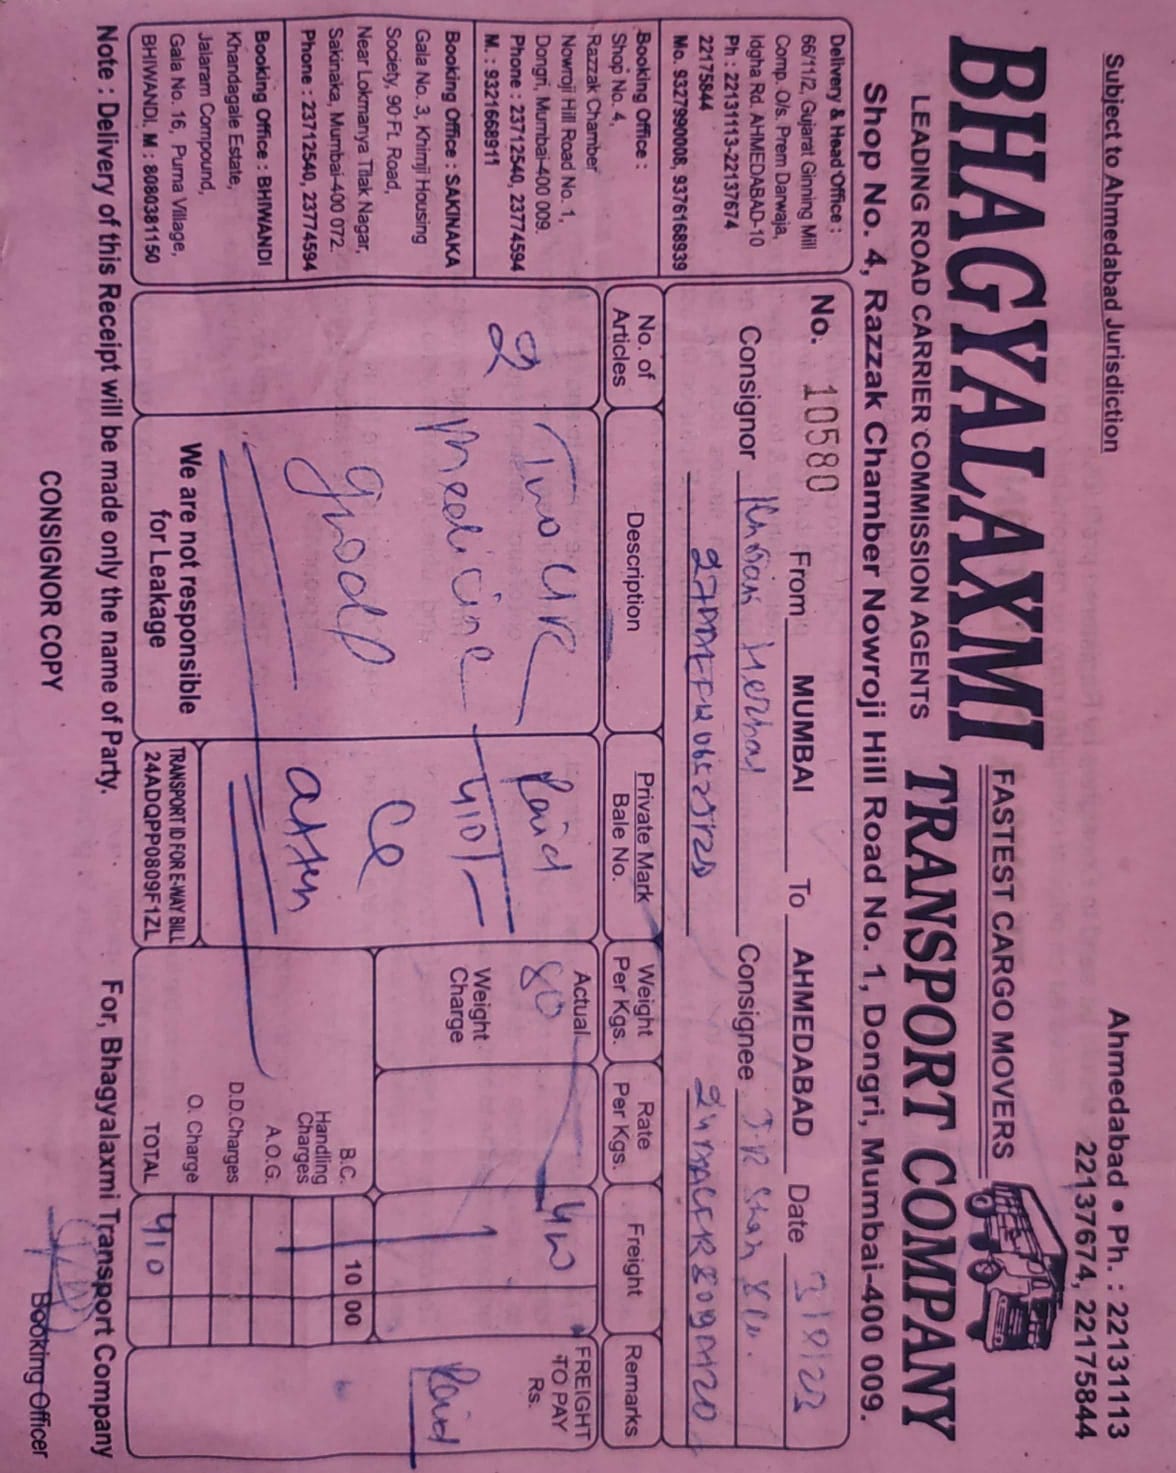 Subject to Ahmedabad Jurisdiction
Ahmedabad • Ph. : 22131113
22137674, 22175844
BHAGYALAXMI TRANSPORT COMPANY
FASTEST CARGO MOVERS
LEADING ROAD CARRIER COMMISSION AGENTS
Shop No. 4, Razzak Chamber Nowroji Hill Road No. 1, Dongri, Mumbai-400 009.
Delivery & Head Office :
66/11/2, Gujarat Ginning Mill
Comp. O/s. Prem Darwaja,
Idgha Rd. AHMEDABAD-10
Ph : 22131113-22137674
22175844
Mo. 9327990008, 9376168939
Booking Office :
Shop No. 4,
Razzak Chamber
Nowroji Hill Road No. 1,
Dongri, Mumbai-400 009.
Phone : 23712540, 23774594
M. : 9321668911
Booking Office : SAKINAKA
Gala No. 3, Khimji Housing
Society, 90 Ft. Road,
Near Lokmanya Tilak Nagar,
Sakinaka, Mumbai-400 072.
Phone : 23712540, 23774594
Booking Office : BHIWANDI
Khandagale Estate,
Jalaram Compound,
Gala No. 16, Purna Village,
BHIWANDI. M : 8080381150
No. 10580 From MUMBAI To AHMEDABAD Date
Consignor Consignee
No. of Articles
Description
Private Mark Bale No.
Weight Per Kgs.
Rate Per Kgs.
Freight
Remarks
2
Two
medicine
good
Paid
410/-
Actual
80
Weight Charge
FREIGHT
TO PAY
Rs.
Paid
B.C. 10 00
Handling Charges
A.O.G.
D.D.Charges
O. Charge
TOTAL 410
We are not responsible
for Leakage
TRANSPORT ID FOR E-WAY BILL
24ADQPP0809F1ZL
Note : Delivery of this Receipt will be made only the name of Party.
For, Bhagyalaxmi Transport Company
CONSIGNOR COPY
Booking Officer